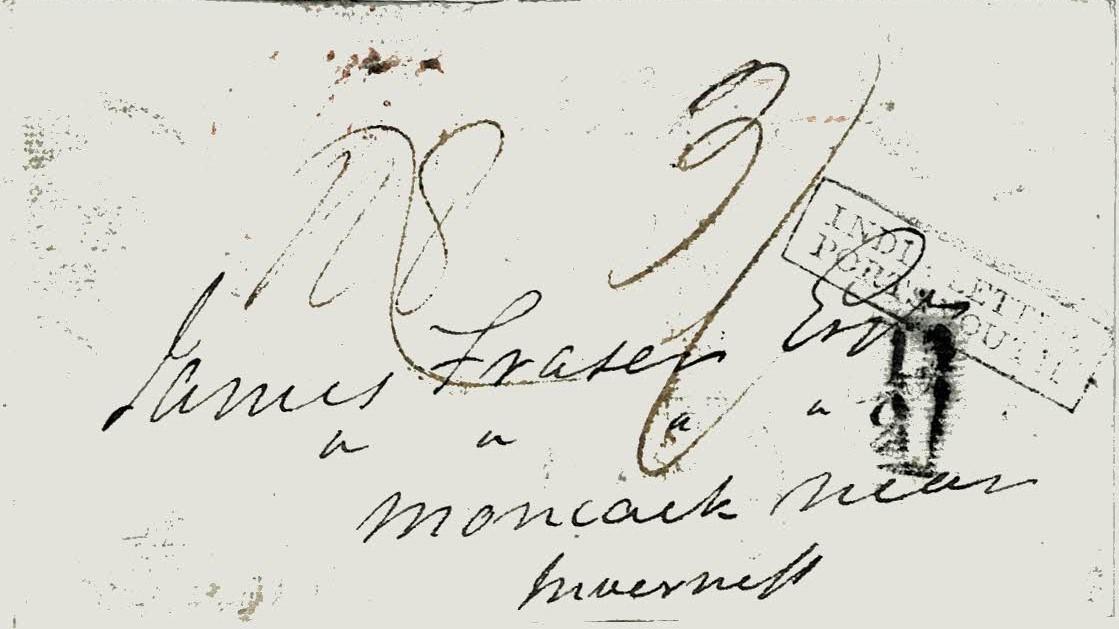 N8 3/
INDIA LETTER
PORTSMOUTH
James Fraser Esqr
Moncack near
Inverness